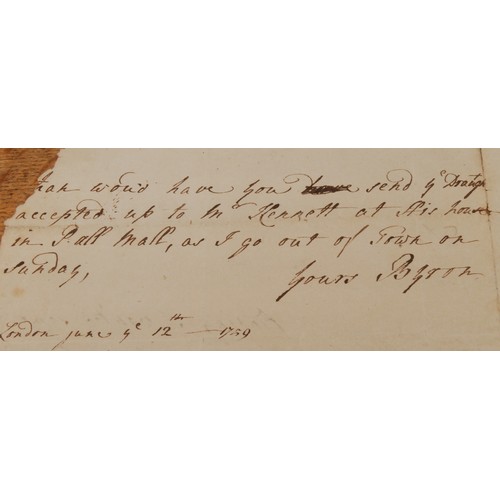 wou'd have you send yᵉ Draught
accepted up to Mʳ Kennett at His house
in Pall Mall, as I go out of Town on
Sunday,        Yours Byron
London june yᵉ 12ᵗʰ — 1759